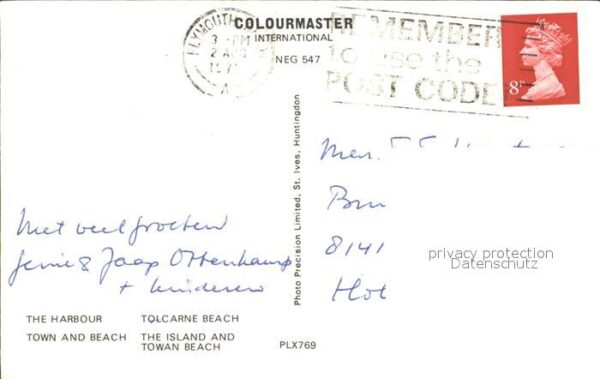 PLYMOUTH
3 - PM
2 AUG
197
A
COLOURMASTER
INTERNATIONAL
NEG 547
REMEMBER
to use the
POST CODE
8P
Photo Precision Limited, St. Ives, Huntingdon
Met veel groeten
Jenie & Jaap Ottenkamp
+ kinderen
8141
privacy protection
Datenschutz
THE HARBOUR TOLCARNE BEACH
TOWN AND BEACH THE ISLAND AND
TOWAN BEACH
PLX769